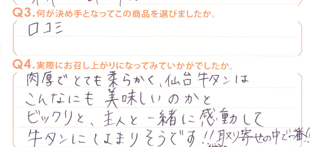 Q3.何が決め手となってこの商品を選びましたか。
口コミ
Q4.実際にお召し上がりになってみていかがでしたか。
肉厚でとても柔らかく、仙台牛タンは
こんなにも美味しいのかと
ビックリと、主人と一緒に感動して
牛タンにはまりそうです!!取り寄せの中で一番!!